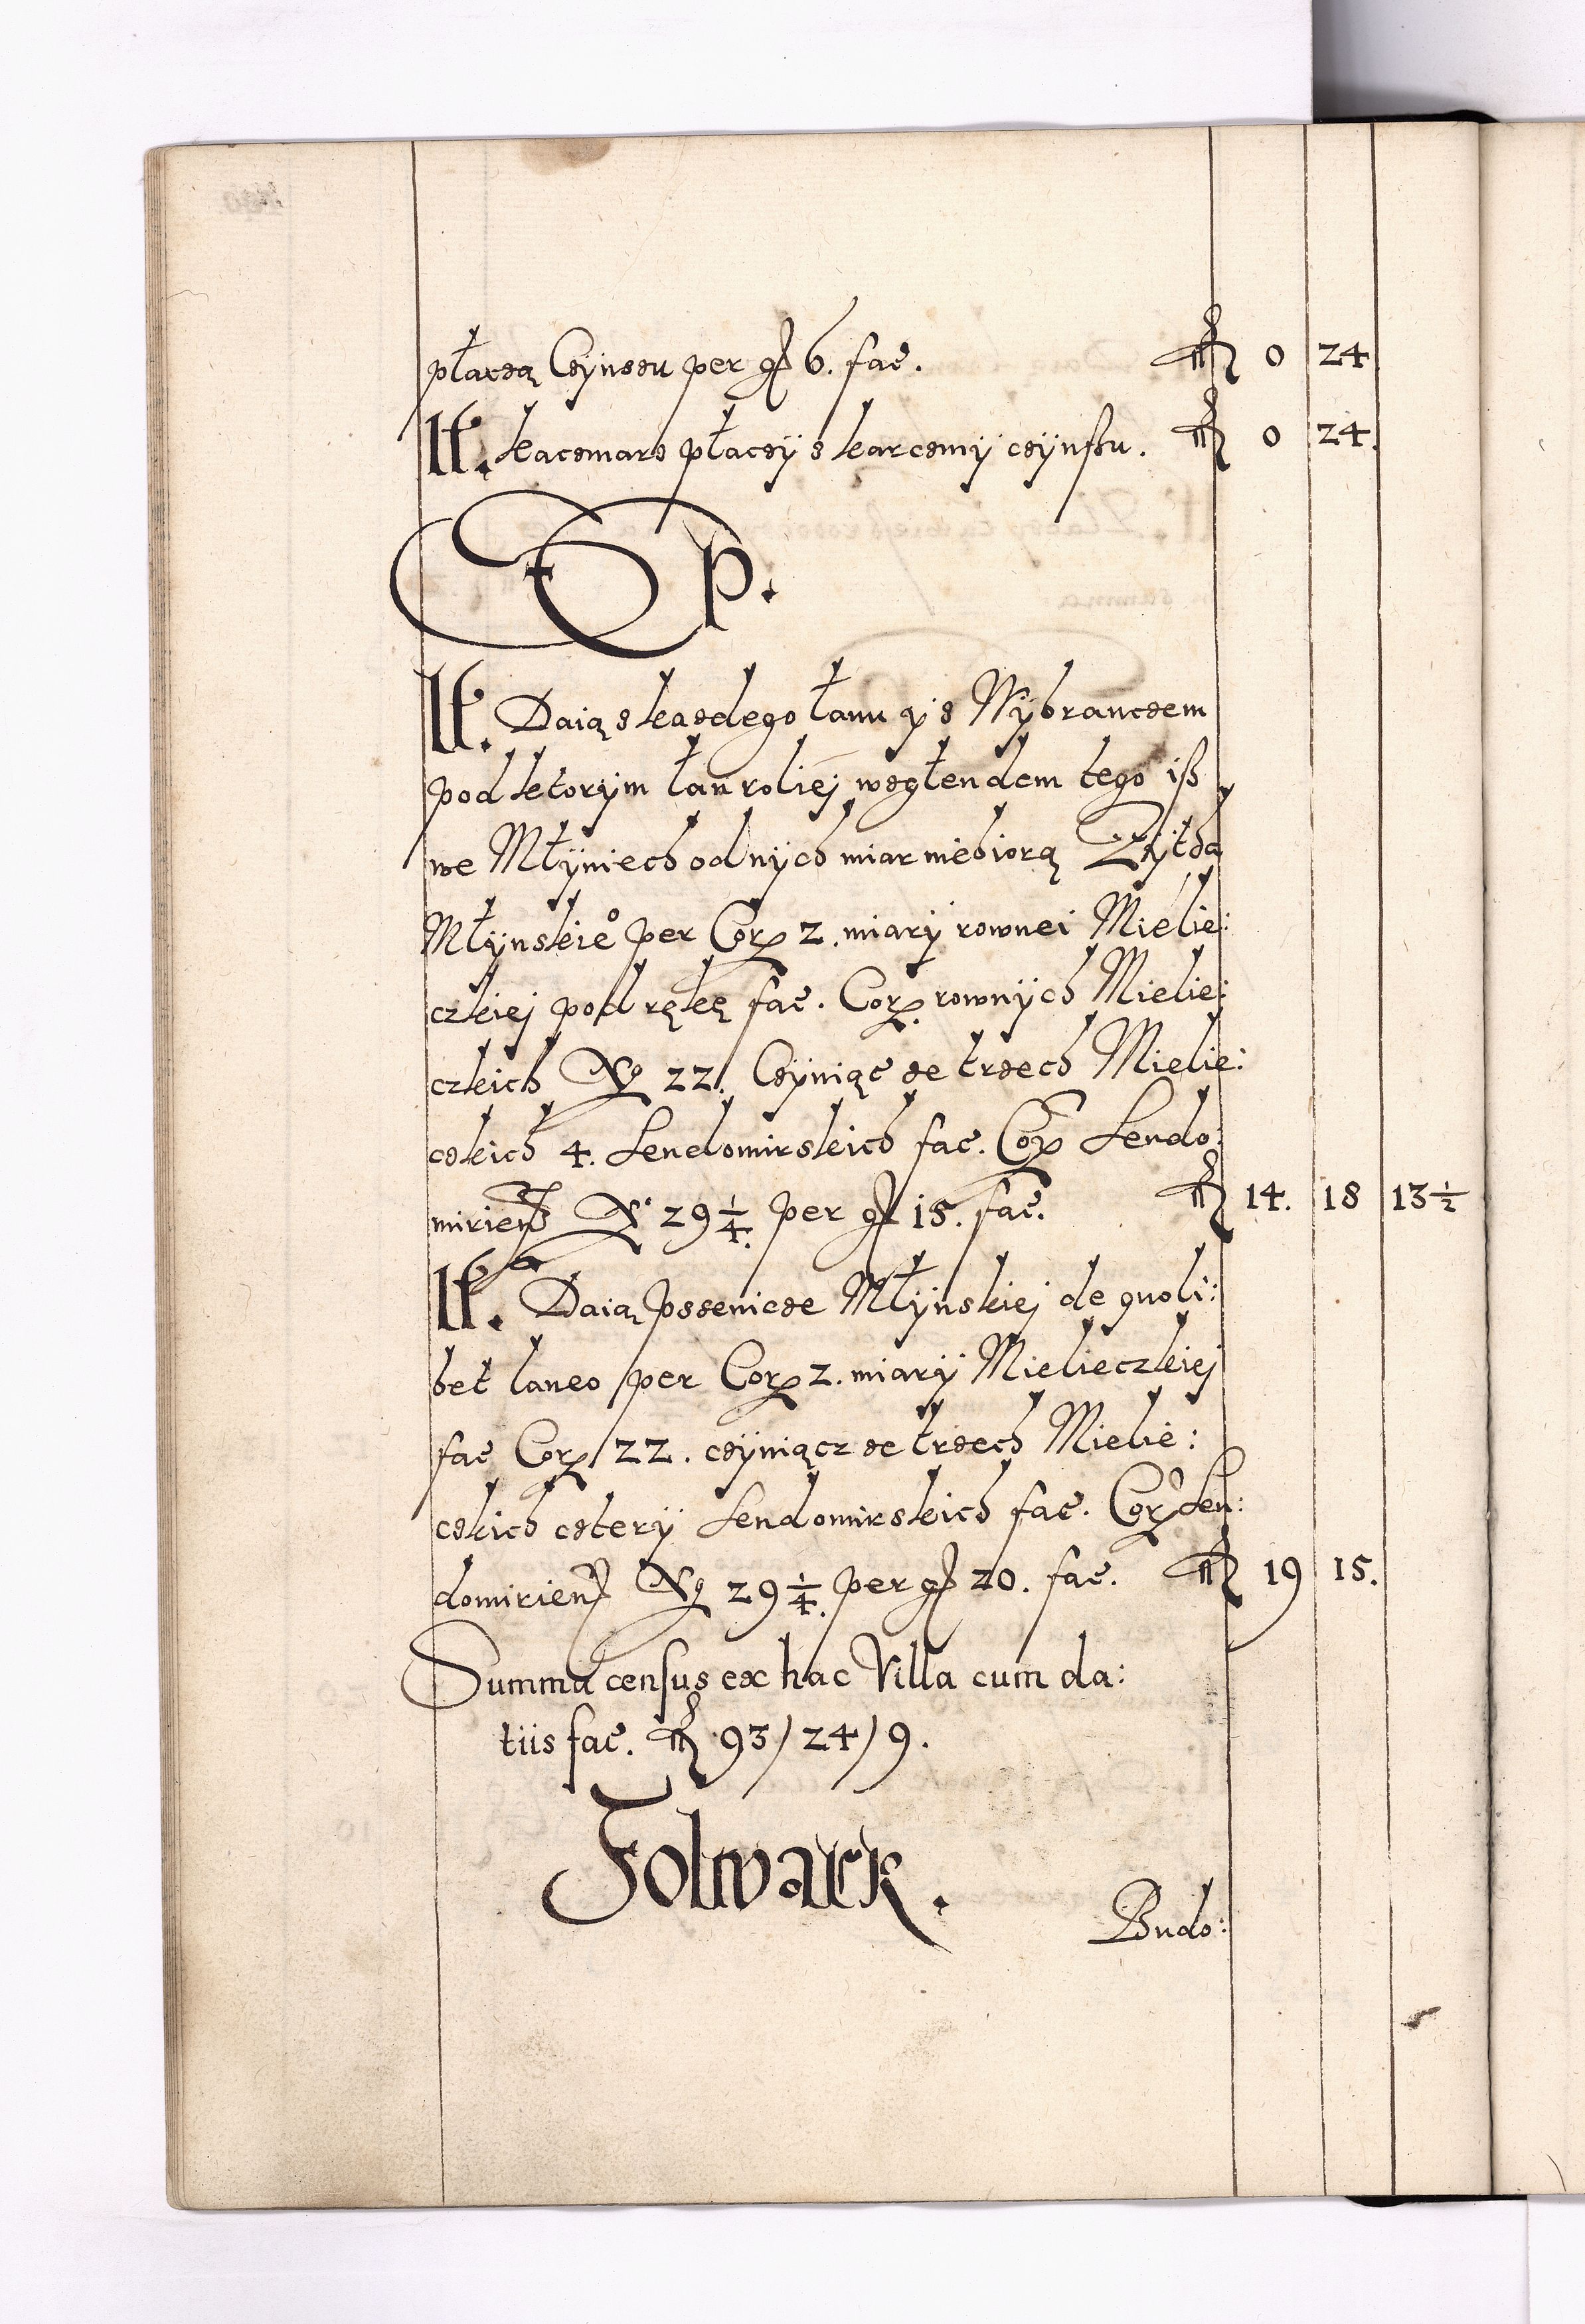 płaczą Czynszu per gr 6. fac. fl 0 24
It. kaczmarz płaczy z karczmy czynßu. fl 0 24.
P.
It. Daią z kazdego łanu y z Wybranczem
pod ktorym łan roliej wzglendem tego iß
we Młyniech od nych miar niebiorą Zytha
Młynskie° per Cor 2. miary rownei Mielie:
czkiej pod rękę fac. Cor. rownych Mielie:
czkich No 22. Czyniąc ze trzech Mielie:
czkich 4. Sendomirskich fac. Cor Sendo:
mirien No 29 1/4. per gr 15. fac. fl 14. 18 13 1/2
It. Daią Pszenicze Młynskiej de quoli:
bet laneo per Cor 2. miary Mielieczkiej
fac Cor 22. czyniącz ze trzech Mielie:
czkich cztery Sendomirskich fac. Cor Sen:
domirien No 29 1/4. per gr 20. fac. fl 19 15.
Summa census ex hac Villa cum da:
tiis fac. fl 93/24/9.
Folwark.
Budo: